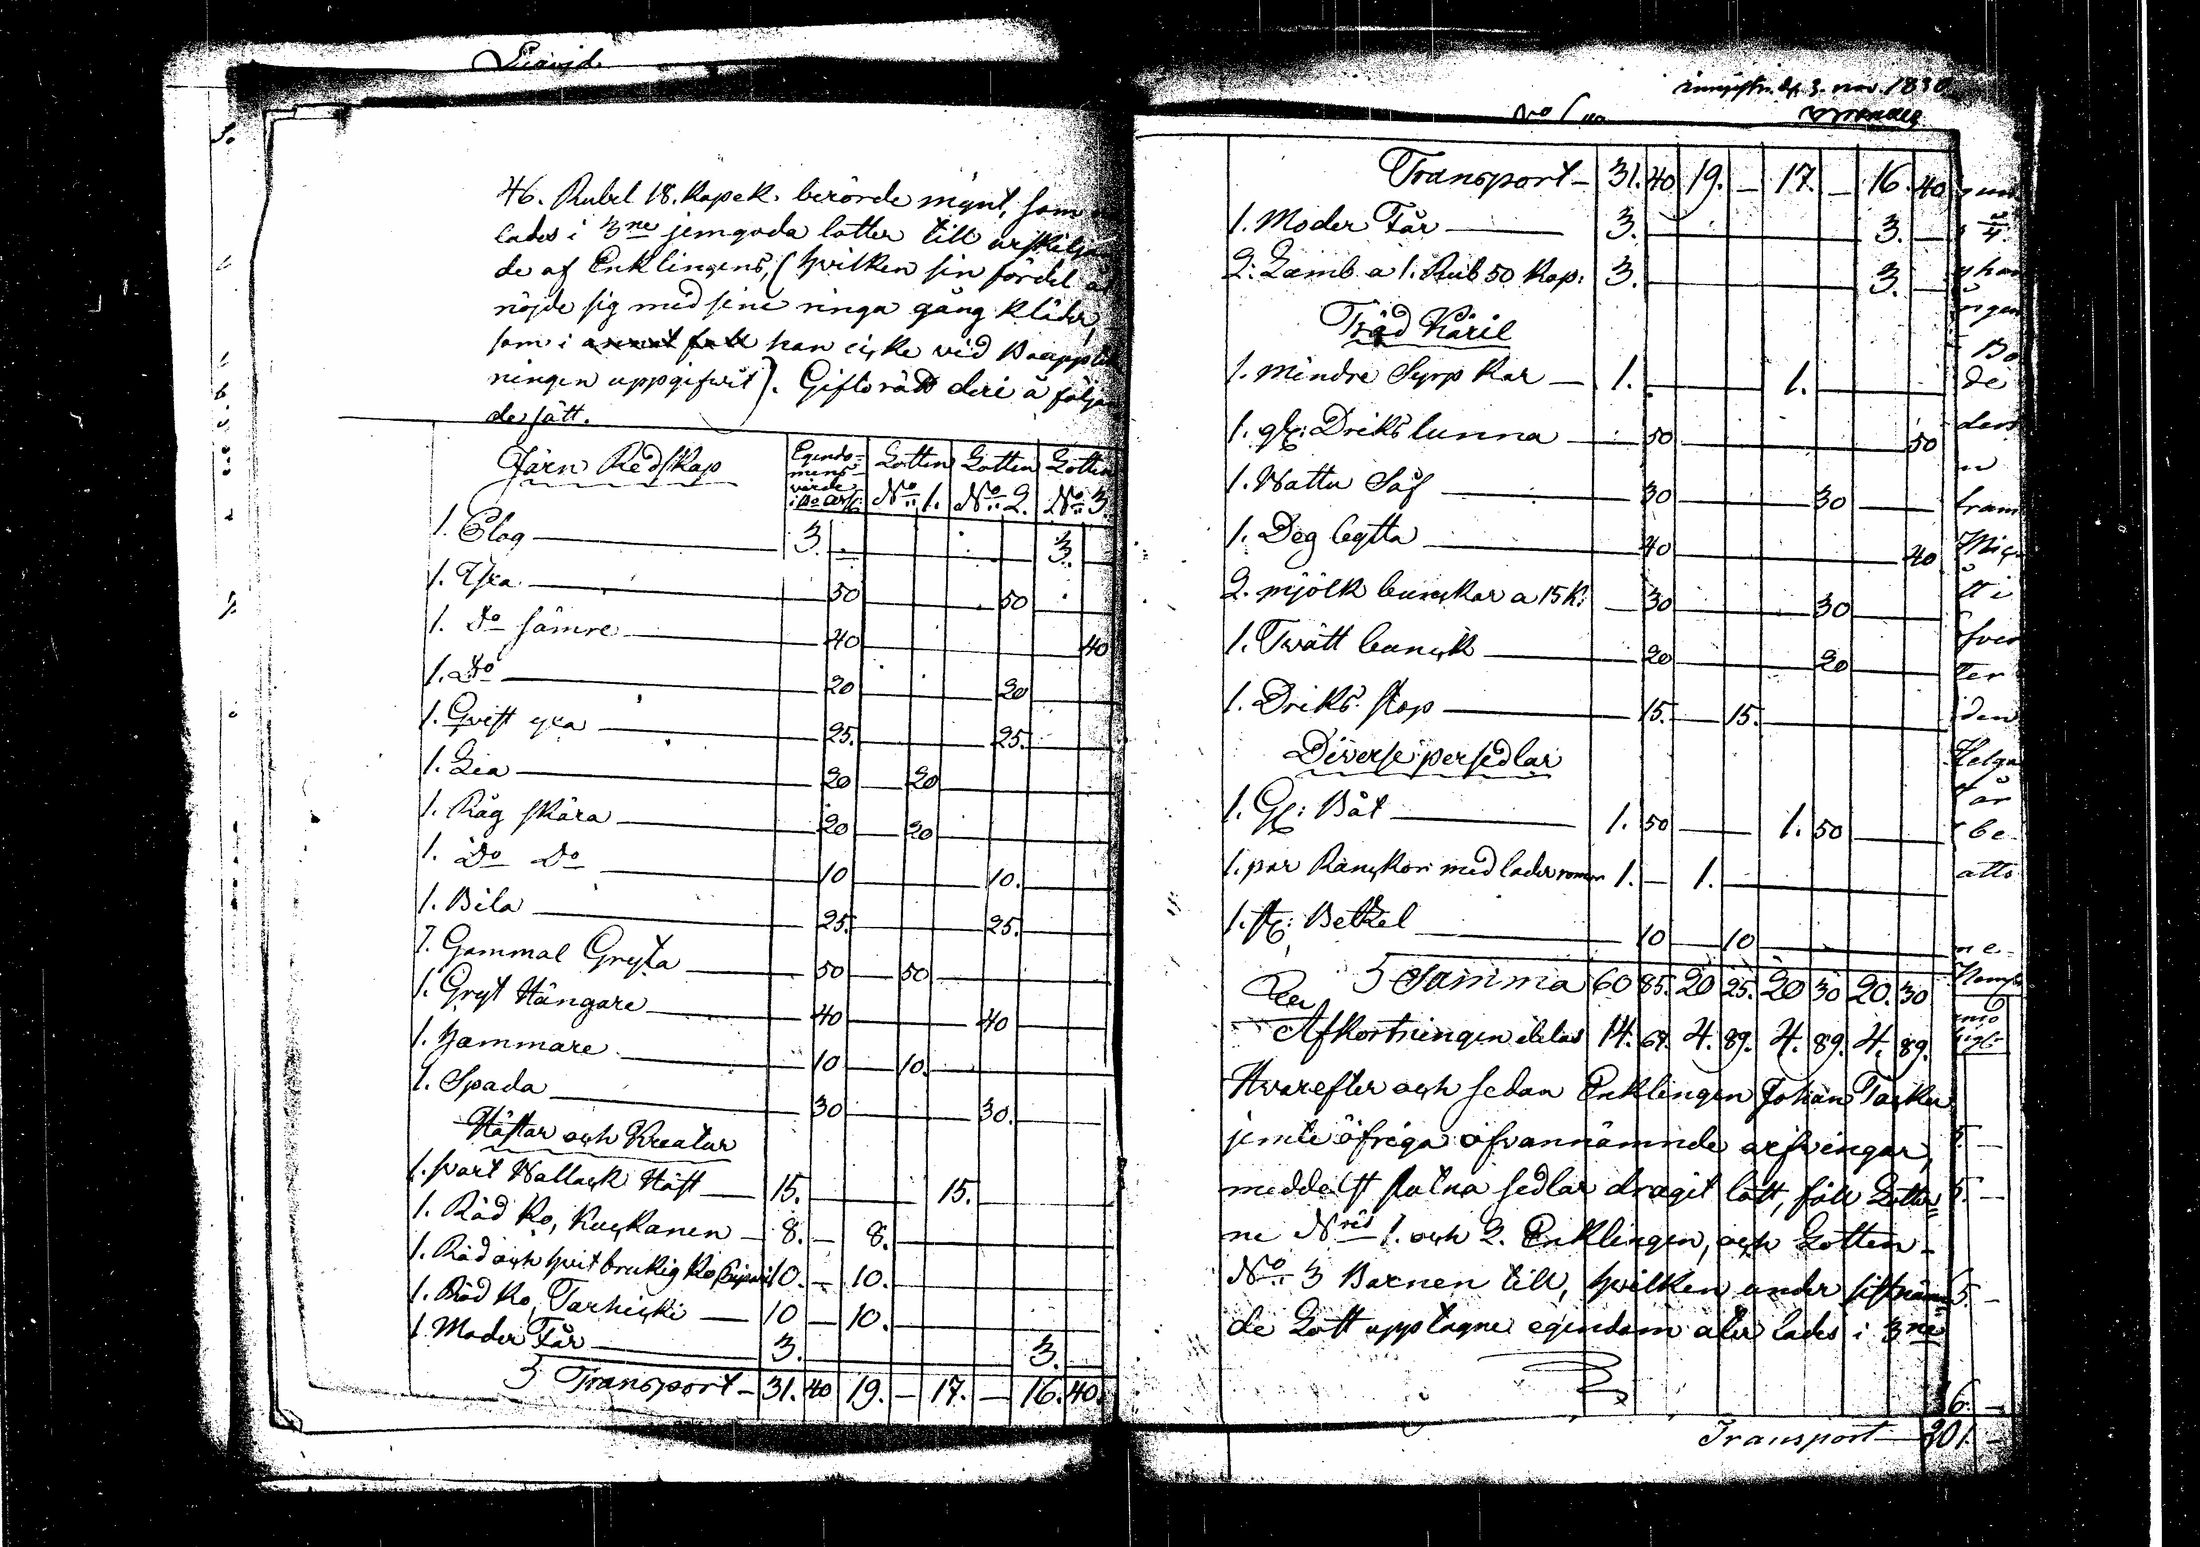 46. Rubel 18. Kopek. berörde mynt, som
lades i 3ne jemgoda lotter till
de af Enklingens, (hvilken sin fördel
nöjde sig med sine ringa gång kläder,
som i annat fall han icke vid
ningen uppgifvit). Giftorätt deri å
de sätt.
Järn Redskap Egendo- Lotten Lotten Lotten
mens
värde No 1. No 2. No 3.
1. Plog 3. 3.
1. Yxa 50 50
1. Do sämre 40 40
1. Do 20 20
1. Qvist yxa 25. 25.
1. Lia 20 20
1. Råg skära 20 20
1. Do Do 10 10.
1. Bila 25. 25.
1. Gammal Gryta 50 50
1. Gryt Hängare 40 40
1. Hammare 10 10.
1. Spada 30 30.
Hästar och Kreatur
1. svart Wallack Häst 15. 15.
1. Röd Ko, Kuckanen 8. 8.
1. Röd och hvit brukig Ko 10. 10.
1. Röd Ko, Tarhicki 10 10.
1. Moder Får 3. 3.
Transport 31. 40 19. 17. 16. 40.
3. nov. 1838
Transport 31. 40 19. 17. 16. 40
1. Moder Får 3. 3.
2. Lamb a 1. Rub 50 Kop: 3. 3.
Träd Käril
1. mindre Syrp Kar 1. 1.
1. gl: Dricks tunna 50 50
1. Wattu Så 30 30
1. Deg bytta 40 40
2. mjölk bunckar a 15 K: 30 30
1. Twätt bunck 20 20
1. Dricks stop 15. 15.
Diverse persedlar
1. Gl: Båt 1. 50 1. 50
1. par Ranckor med läder 1. 1.
1. Betzel 10 10
Summa 60 85. 20 25. 20 30 20. 30
Afkortningen delas 14. 67. 4. 89. 4. 89. 4. 89.
Hvarefter och sedan Enklingen Johan
jemte öfriga ofvannämnde arfvingar,
meddelst slutna sedlar dragit lott, föll Lotter
ne Nris 1. och 2. Enklingen, och Lotten
No 3 Barnen till, hvilken under
de Lott upptagne egendom åter lades i 3ne
Transport 201.